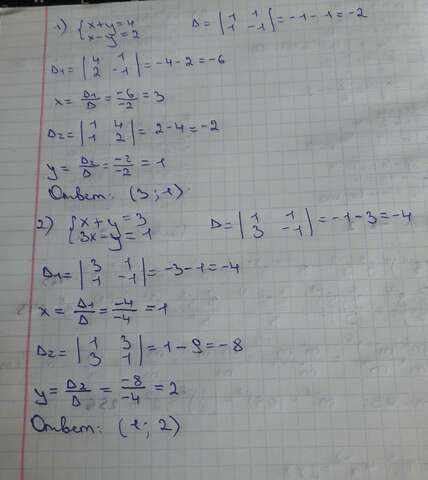 1) {x+y=4 x-y=2 Δ = |1 1 1 -1| = -1-1 = -2
Δ1 = |4 1 2 -1| = -4-2 = -6
x = Δ1/Δ = -6/-2 = 3
Δ2 = |1 4 1 2| = 2-4 = -2
y = Δ2/Δ = -2/-2 = 1
Ответ: (3; 1)
2) {x+y=3 3x-y=1 Δ = |1 1 3 -1| = -1-3 = -4
Δ1 = |3 1 1 -1| = -3-1 = -4
x = Δ1/Δ = -4/-4 = 1
Δ2 = |1 3 3 1| = 1-9 = -8
y = Δ2/Δ = -8/-4 = 2
Ответ: (1; 2)